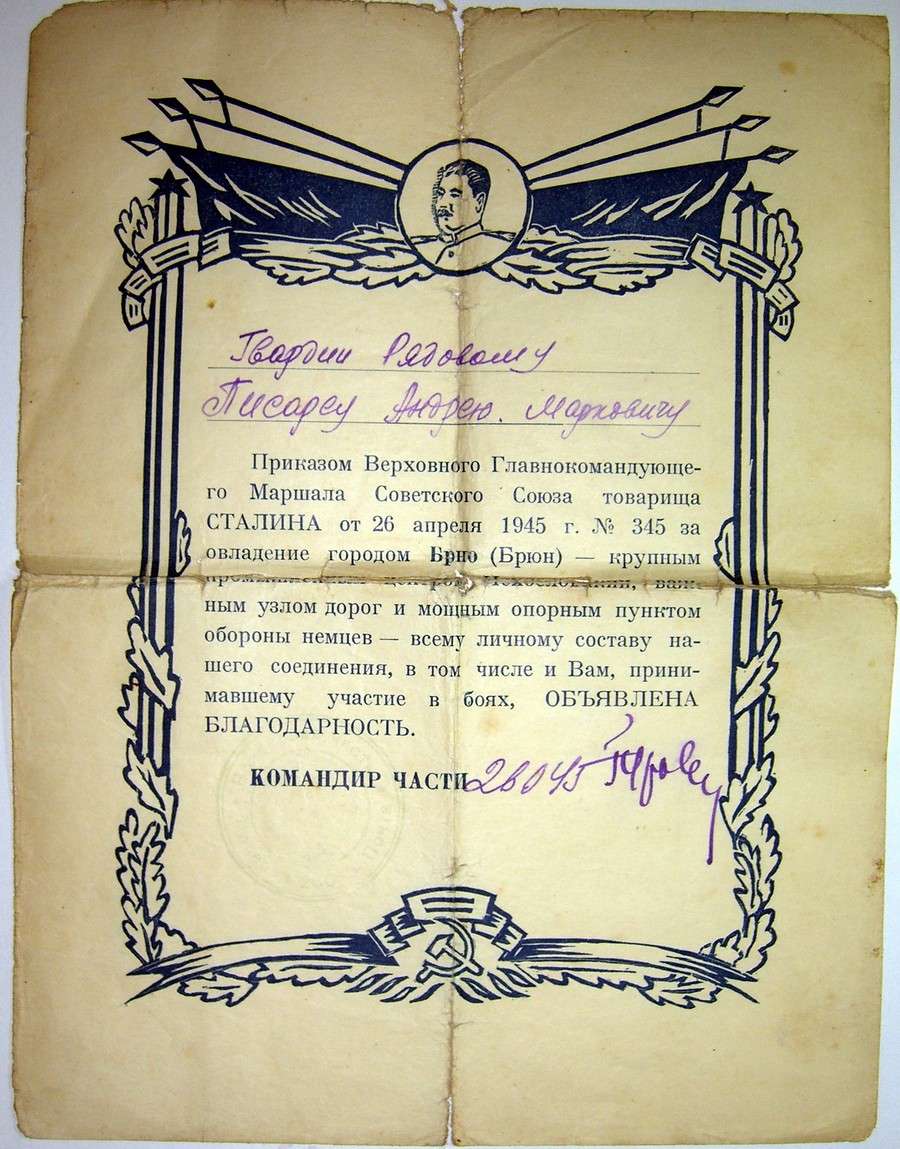 Гвардии Рядовому
Писареу Андрею. Марковичу
Приказом Верховного Главнокомандующе-
го Маршала Советского Союза товарища
СТАЛИНА от 26 апреля 1945 г. № 345 за
овладение городом Брно (Брюн) — крупным
промышленным центром Чехословакии, важ-
ным узлом дорог и мощным опорным пунктом
обороны немцев — всему личному составу на-
шего соединения, в том числе и Вам, прини-
мавшему участие в боях, ОБЪЯВЛЕНА
БЛАГОДАРНОСТЬ.
КОМАНДИР ЧАСТИ 26045